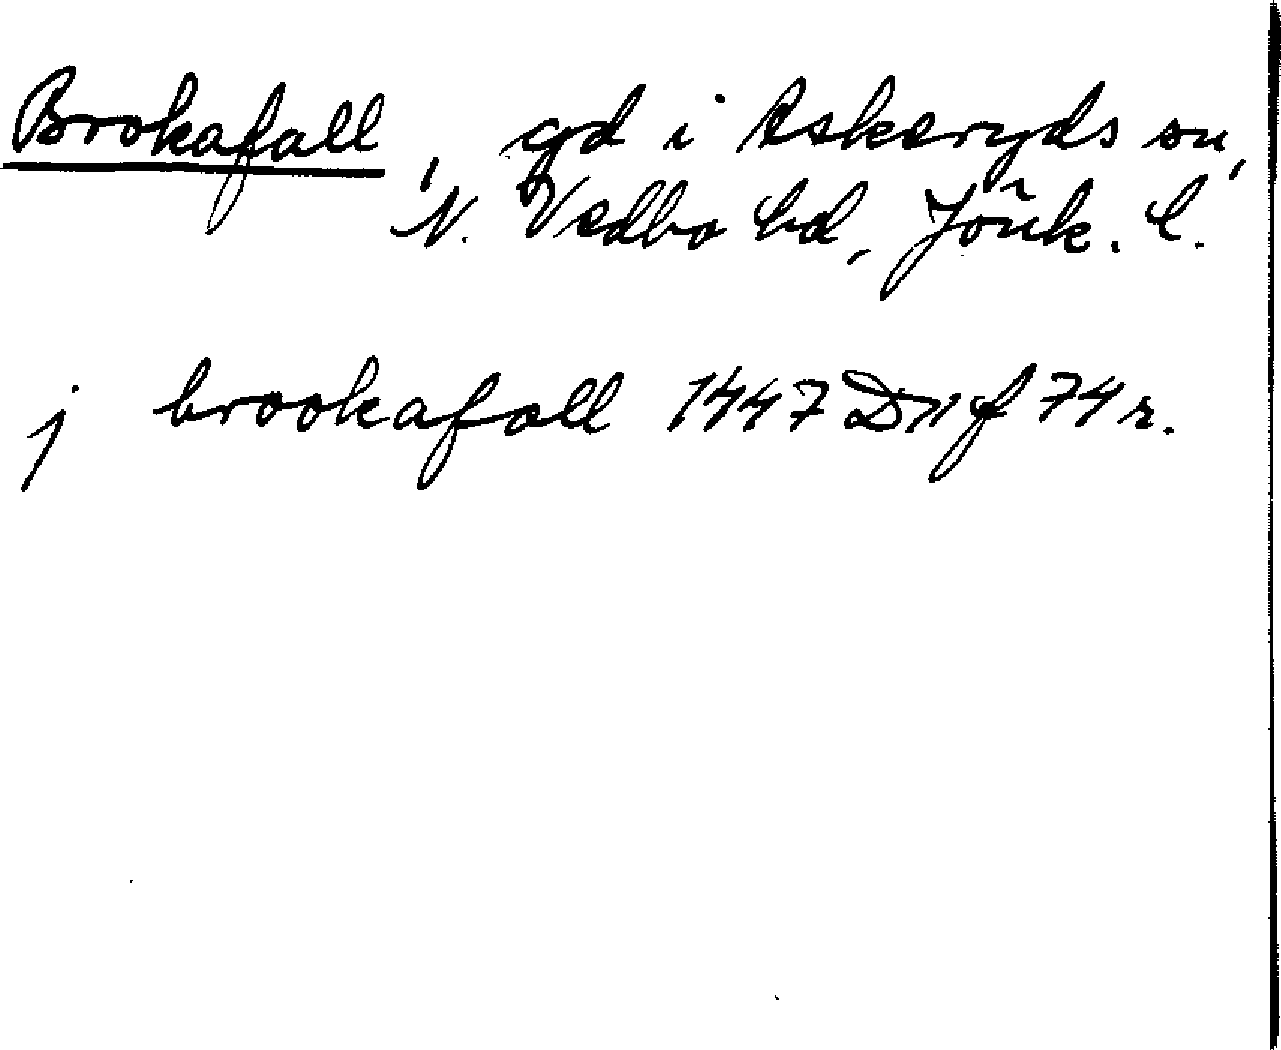 Brokafall, gd i Askeryds sn,
N. Vedbo hd, Jönk. l.
j brookafall 1447 D 11 f 74 r.